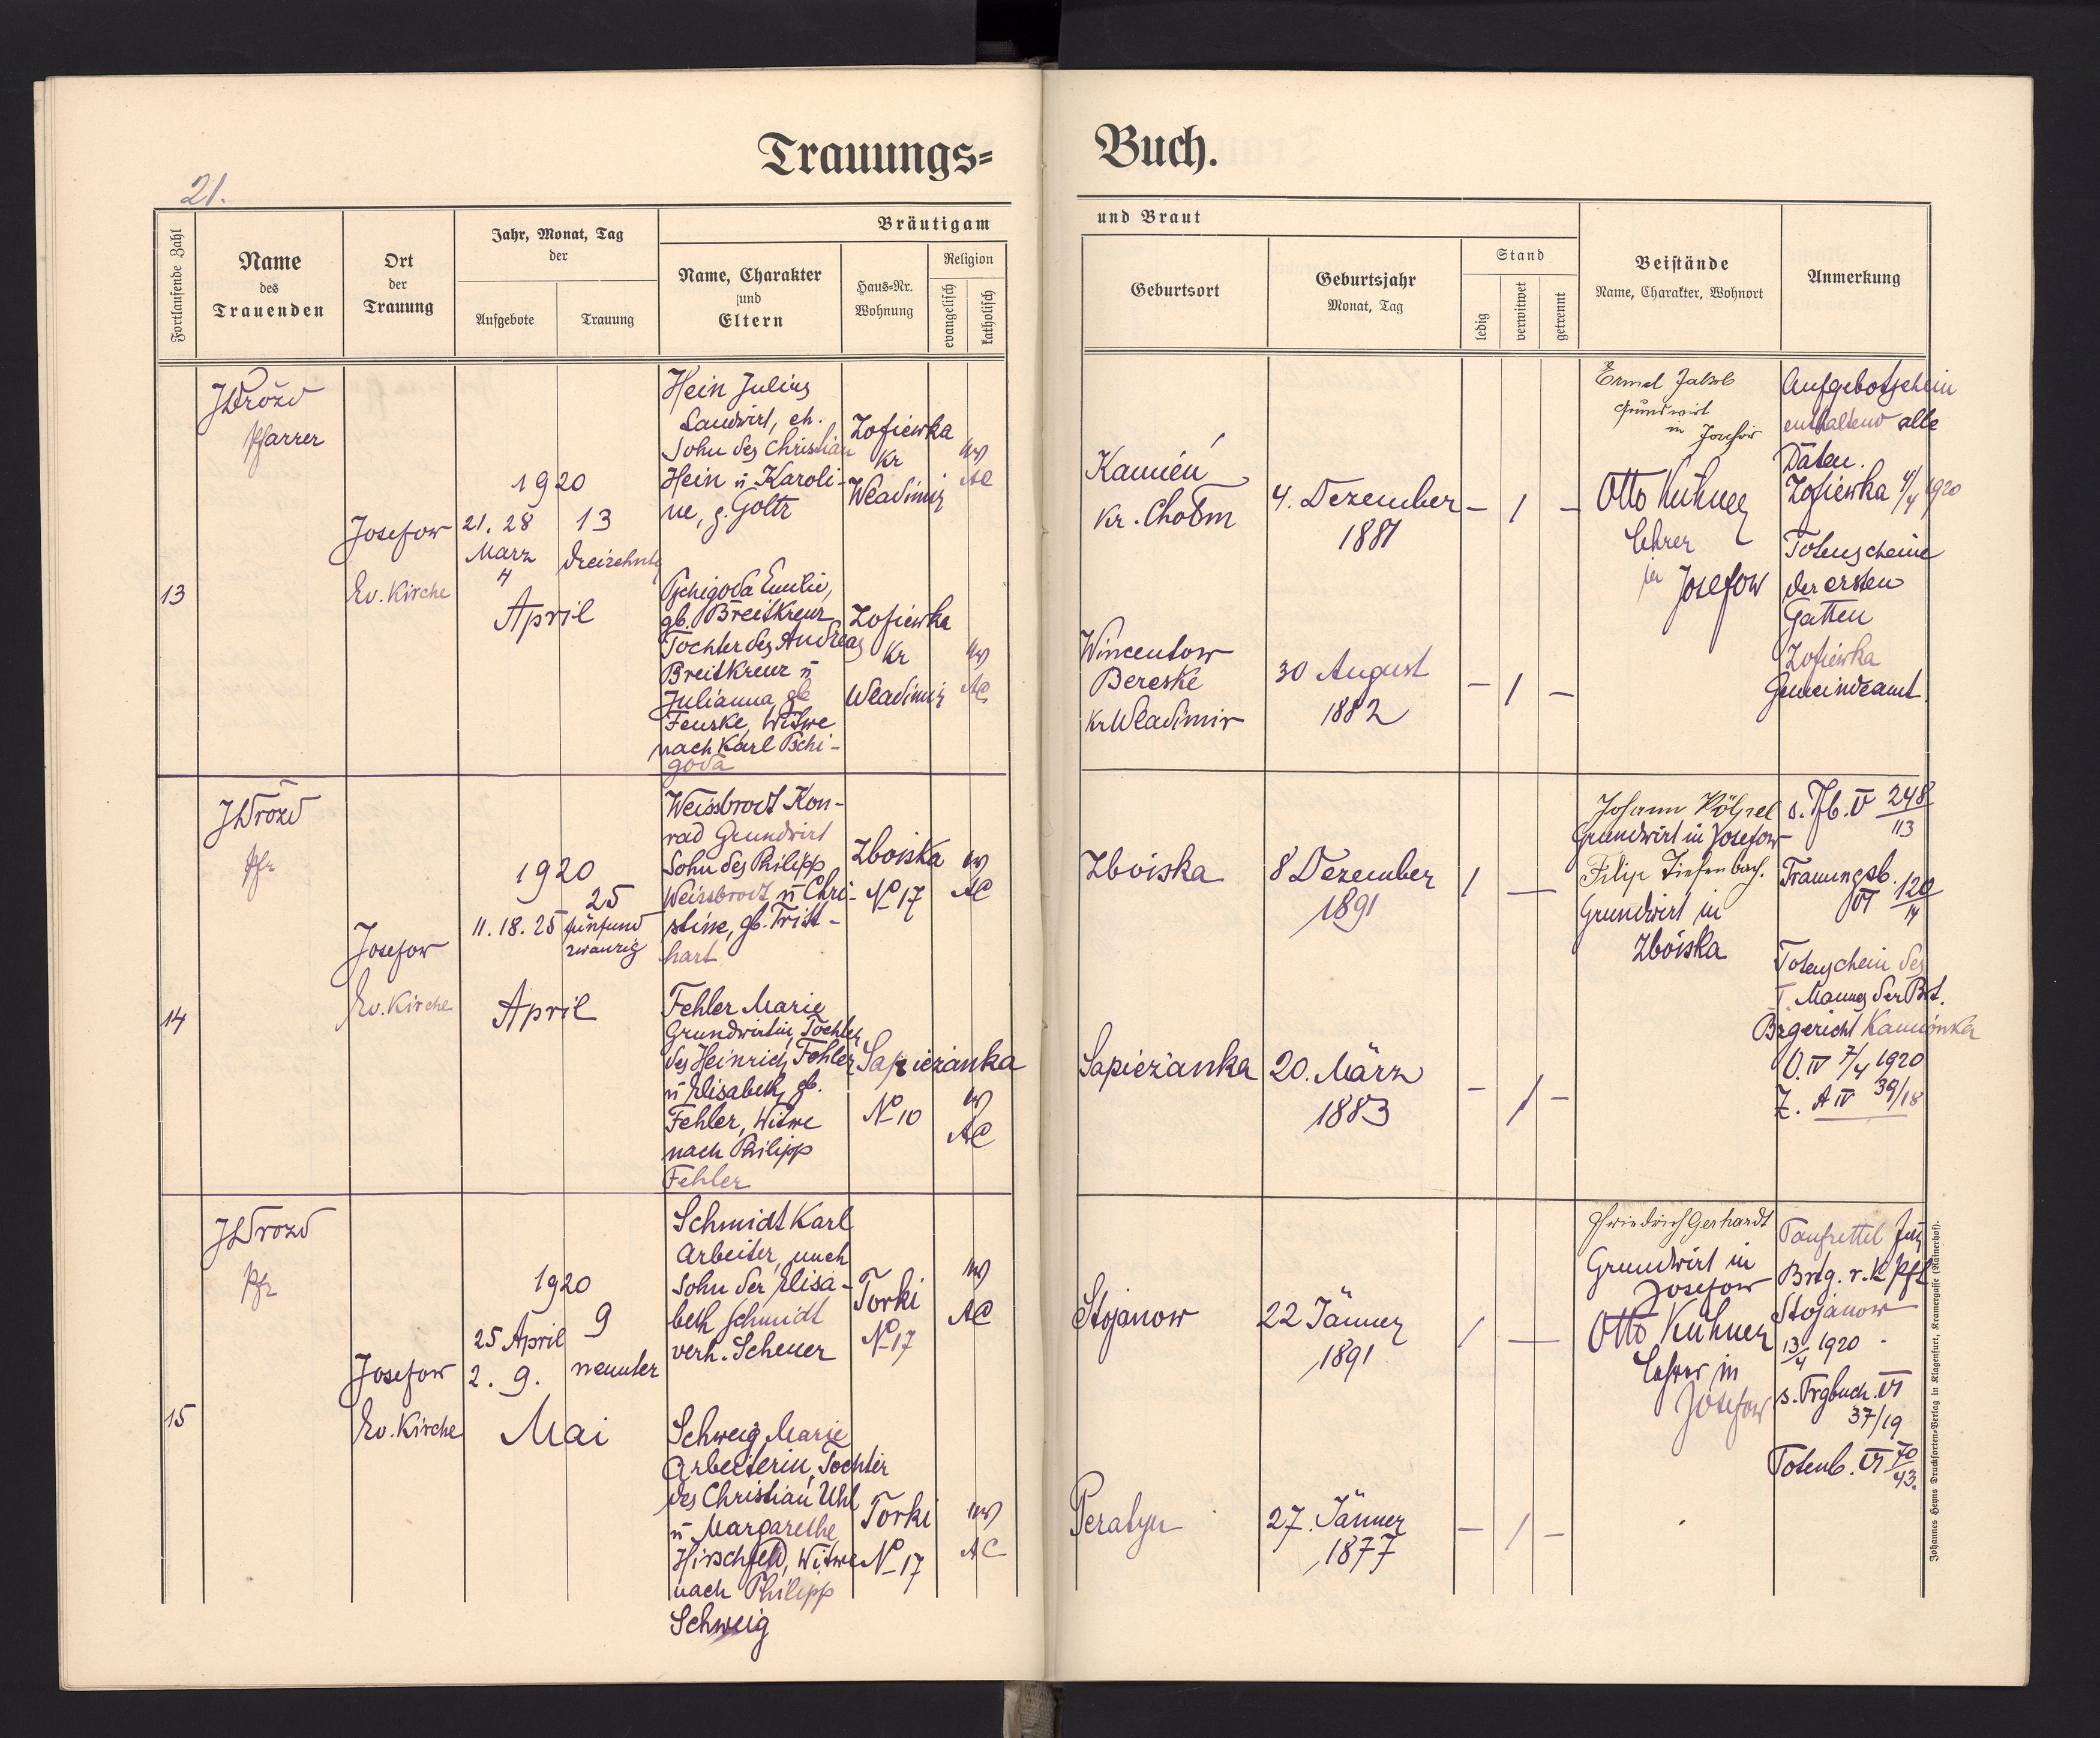 Trauungs=
Buch.
21.
Fortlaufende Zahl
Name
des
Trauenden
Ort
der
Trauung
Jahr, Monat, Tag
der
Aufgebote
Trauung
Bräutigam
Name, Charakter
und
Eltern
Haus-Nr.
Wohnung
Religion
evangelisch
katholisch
und Braut
Geburtsort
Geburtsjahr
Monat, Tag
Stand
ledig
verwitwet
getrennt
Beistände
Name, Charakter, Wohnort
Anmerkung
13
JDrozd
Pfarrer
Josefow
Ev. Kirche
1920
21. 28
März
4
April
13
dreizehnte
Hein Julius
Landwirt, eh.
Sohn des Christian
Hein u Karoli-
ne, g. Goltz
Zofiewka
Kr
Wladimir
ev
AC
Kamień
Kr. Chołm
4. Dezember
1881
– 1 –
Tschigoda Emilie,
gb. Breitkreuz
Tochter des Andreas
Breitkreuz u
Julianna gb
Fenske, Witwe
nach Karl Tschi-
goda
Zofiewka
Kr
Wladimir
ev
AC
Wincentow
Bereske
Kr Wladimir
30 August
1882
– 1 –
Ermel Jakob
Grundwirt
in Josefow
Otto Kuhner
Lehrer
in Josefow
Aufgebotschein
enthaltend alle
Daten.
Zofiewka 4/4 1920
Totenscheine
der ersten
Gatten
Zofiewka
Gemeindeamt.
14
JDrozd
Pfr
Josefow
Ev. Kirche
1920
11. 18. 25
April
25
fünfund
zwanzig
Weissbrodt Kon-
rad Grundwirt
Sohn des Philipp
Weissbrodt u Chri-
stine, gb. Tritt-
hart
Zboiska
No 17
ev
AC
Zboiska
8 Dezember
1891
1 —
Fehler Marie
Grundwirtin, Tochter
des Heinrich Fehler
u Elisabeth, gb.
Fehler, Witwe
nach Philipp
Fehler
Sapieżanka
No 10
ev
AC
Sapieżanka
20. März
1883
– 1 –
Johann
Grundwirt in Josefow
Filip Tiefenbach.
Grundwirt in
Zboiska
s. Tfb. V 248/113
Trauungsb.
VI 120/14
Totenschein des
I Mannes der Brt.
Bzgericht Kamionka
O. IV 7/4 1920
Z. A IV 39/18
15
JDrozd
Pfr
Josefow
Ev. Kirche
1920
25 April
2. 9.
Mai
9
neunter
Schmidt Karl
Arbeiter, uneh
Sohn der Elisa-
beth Schmidt
verh. Scheuer
Torki
No 17
ev
AC
Stojanow
22 Jänner
1891
1 —
Schweig Marie
Arbeiterin, Tochter
des Christian Uhl
u Margarethe
Hirschfeld, Witwe
nach Philipp
Schweig
Torki
No 17
ev
AC
Peratyn
27. Jänner
1877
– 1 –
Friedrich Gerhardt
Grundwirt in
Josefow
Otto Kuhner
Lehrer in
Josefow
Taufzettel
Brtg. r. k Pft
Stojanow
13/4 1920
s. Trgbuch. VI
37/19
Totenb. VI 70/43.
Johannes Heyns Drucksorten-Verlag in Klagenfurt, Kramergasse (Rainerhof).